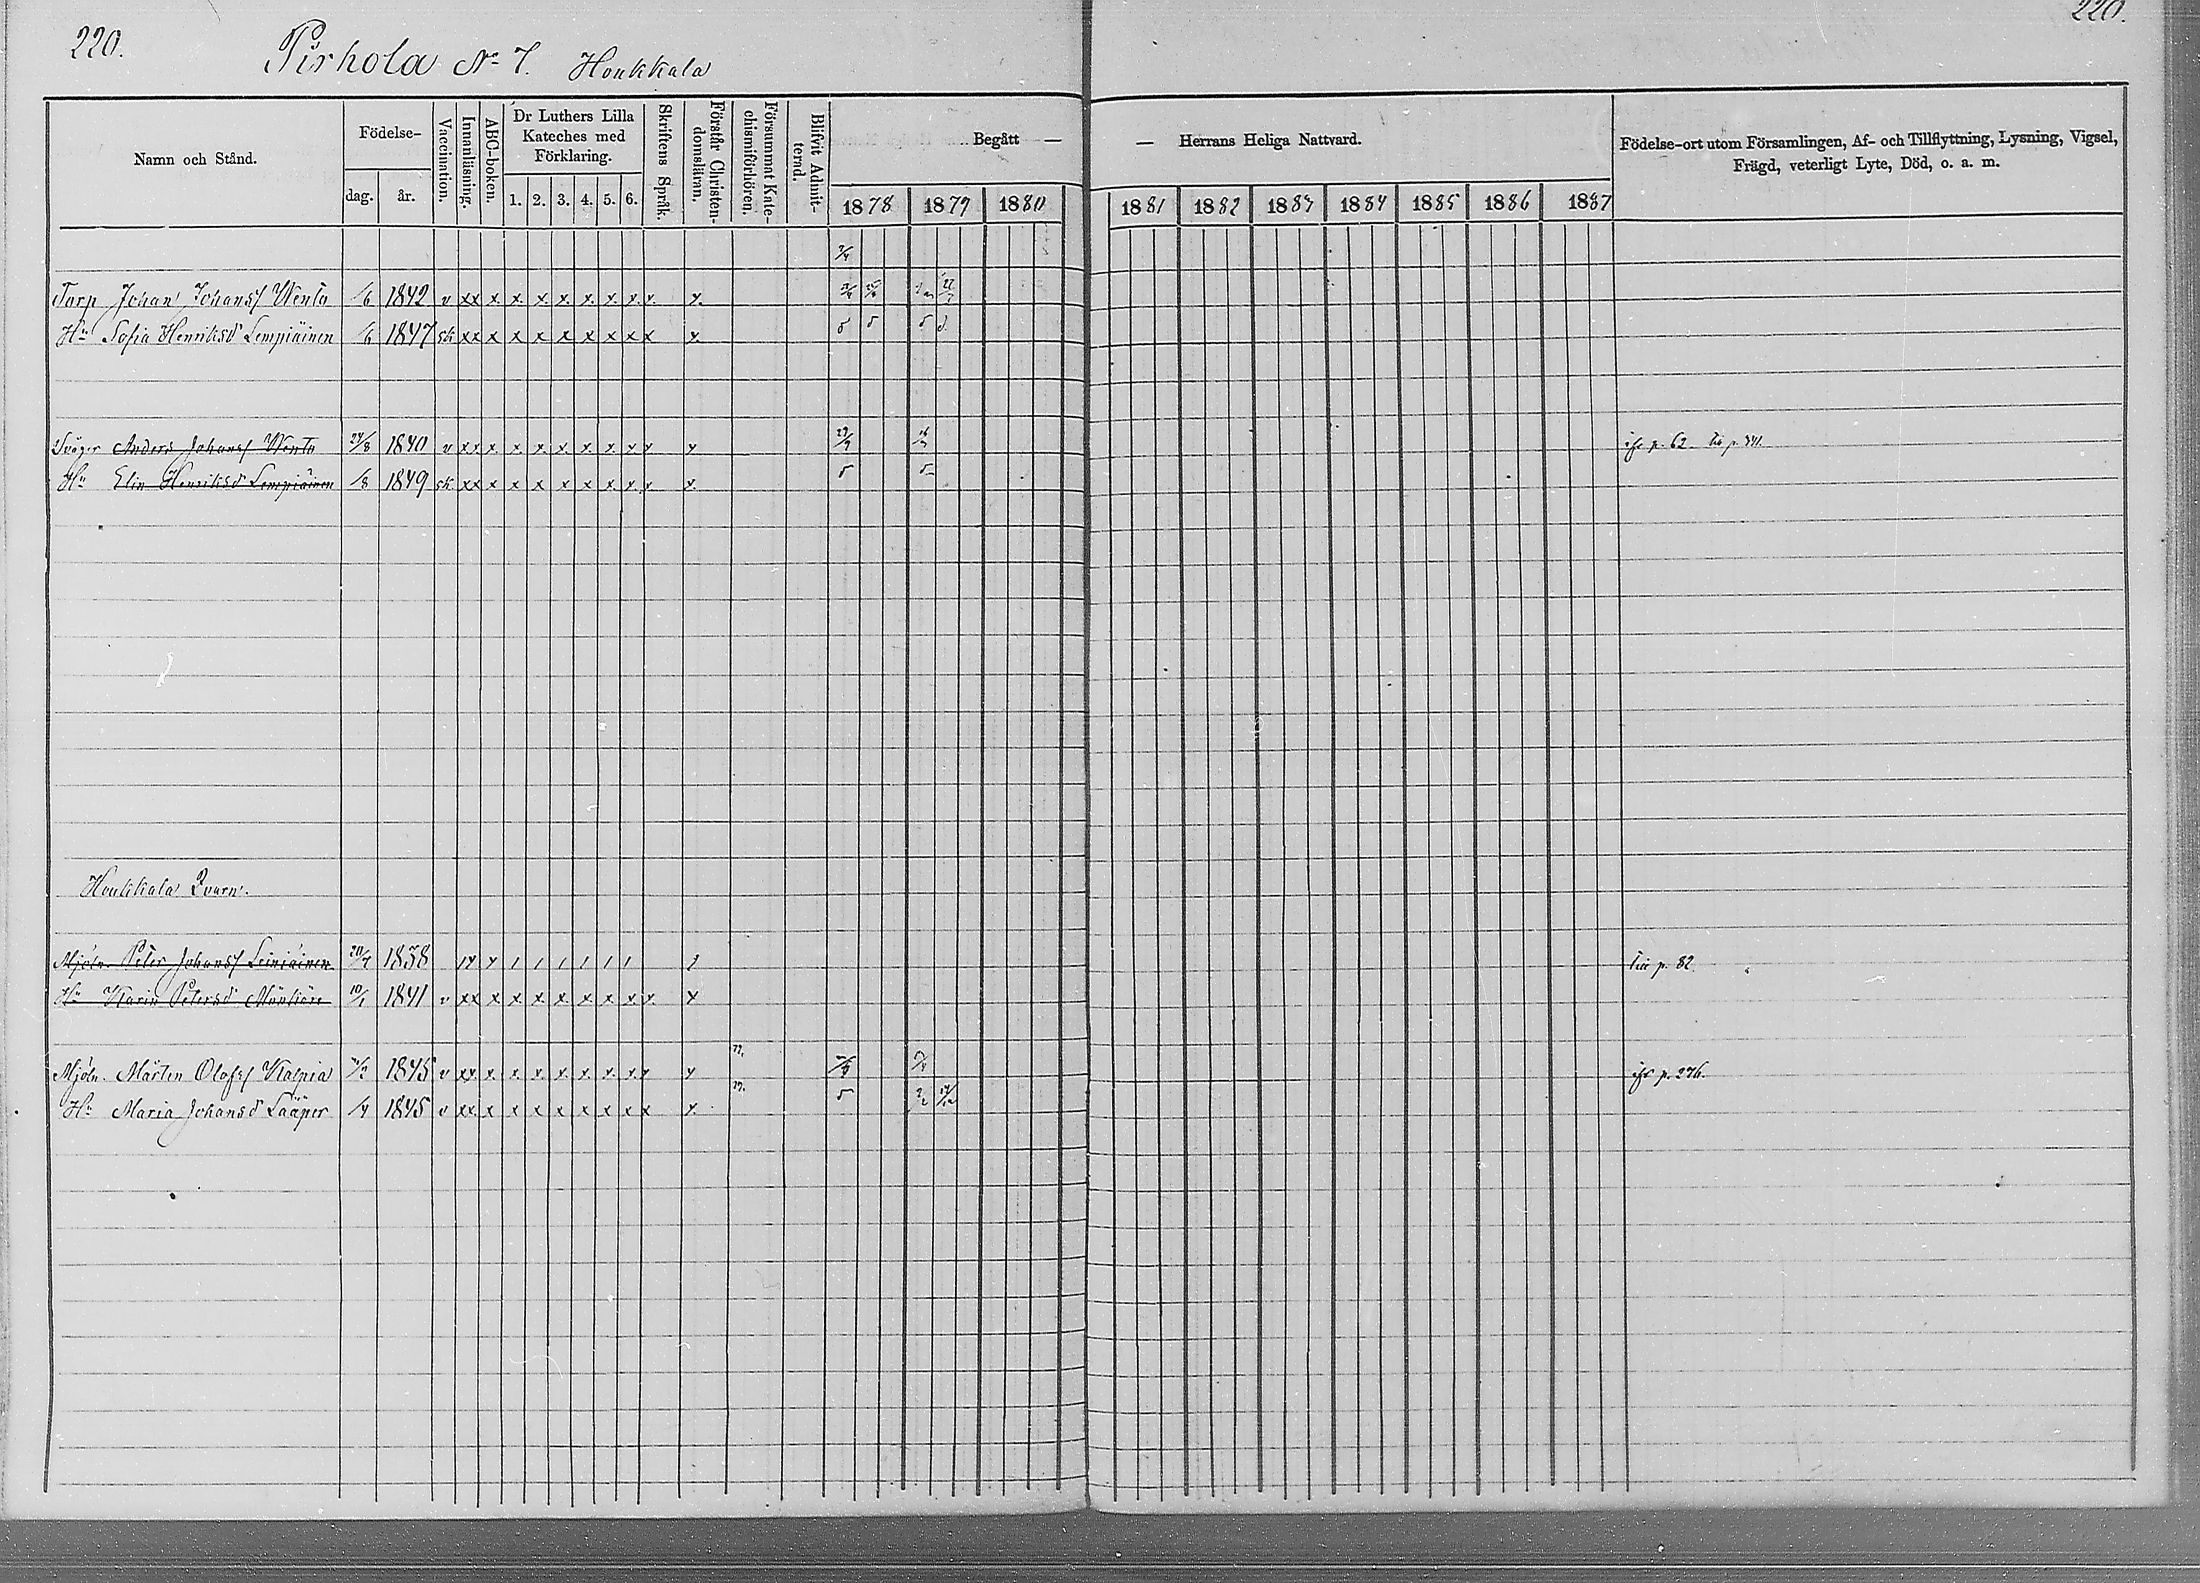 220.
220.
Pirhola No 7. Houkkala
Namn och Stånd.
Födelse-
dag.
år.
Vaccination.
Innanläsning.
ABC-boken.
Dr Luthers Lilla
Kateches med
Förklaring.
1. 2. 3. 4. 5. 6.
Skriftens Språk.
Förstår Christen-
domsläran.
Försummat Kate-
chismiförhören.
Blifvit Admit-
terad.
Begått —
— Herrans Heliga Nattvard.
1878 1879 1880
1881 1882 1883 1884 1885 1886 1887
Födelse-ort utom Församlingen, Af- och Tillflyttning, Lysning, Vigsel,
Frägd, veterligt Lyte, Död, o. a. m.
Torp Johan Johansf Wento /6 1842 v xx x x x x x x x x x
Hu Sofia Henriksd Lempiäinen /6 1847 sk xx x x x x x x x x x
Svåger Anders Johansf Wento 24/8 1840 v xx x x x x x x x x x ifr p. 62
Hu Elin Henriksd Lempiäinen /8 1849 sk xx x x x x x x x x x
Houkkala Qvarn.
Mjöln. Peter Johansf Leiniäinen 1838 p. 82
Hu Karin Petersd 10/1 1841 v xx x x x x x x x x x
Mjöln. Mårten Olofsf Kalpia 1845 v xx x x x x x x x x x ifr p. 276.
Hu Maria Johansd Lääper /4 1845 v xx x x x x x x x x x